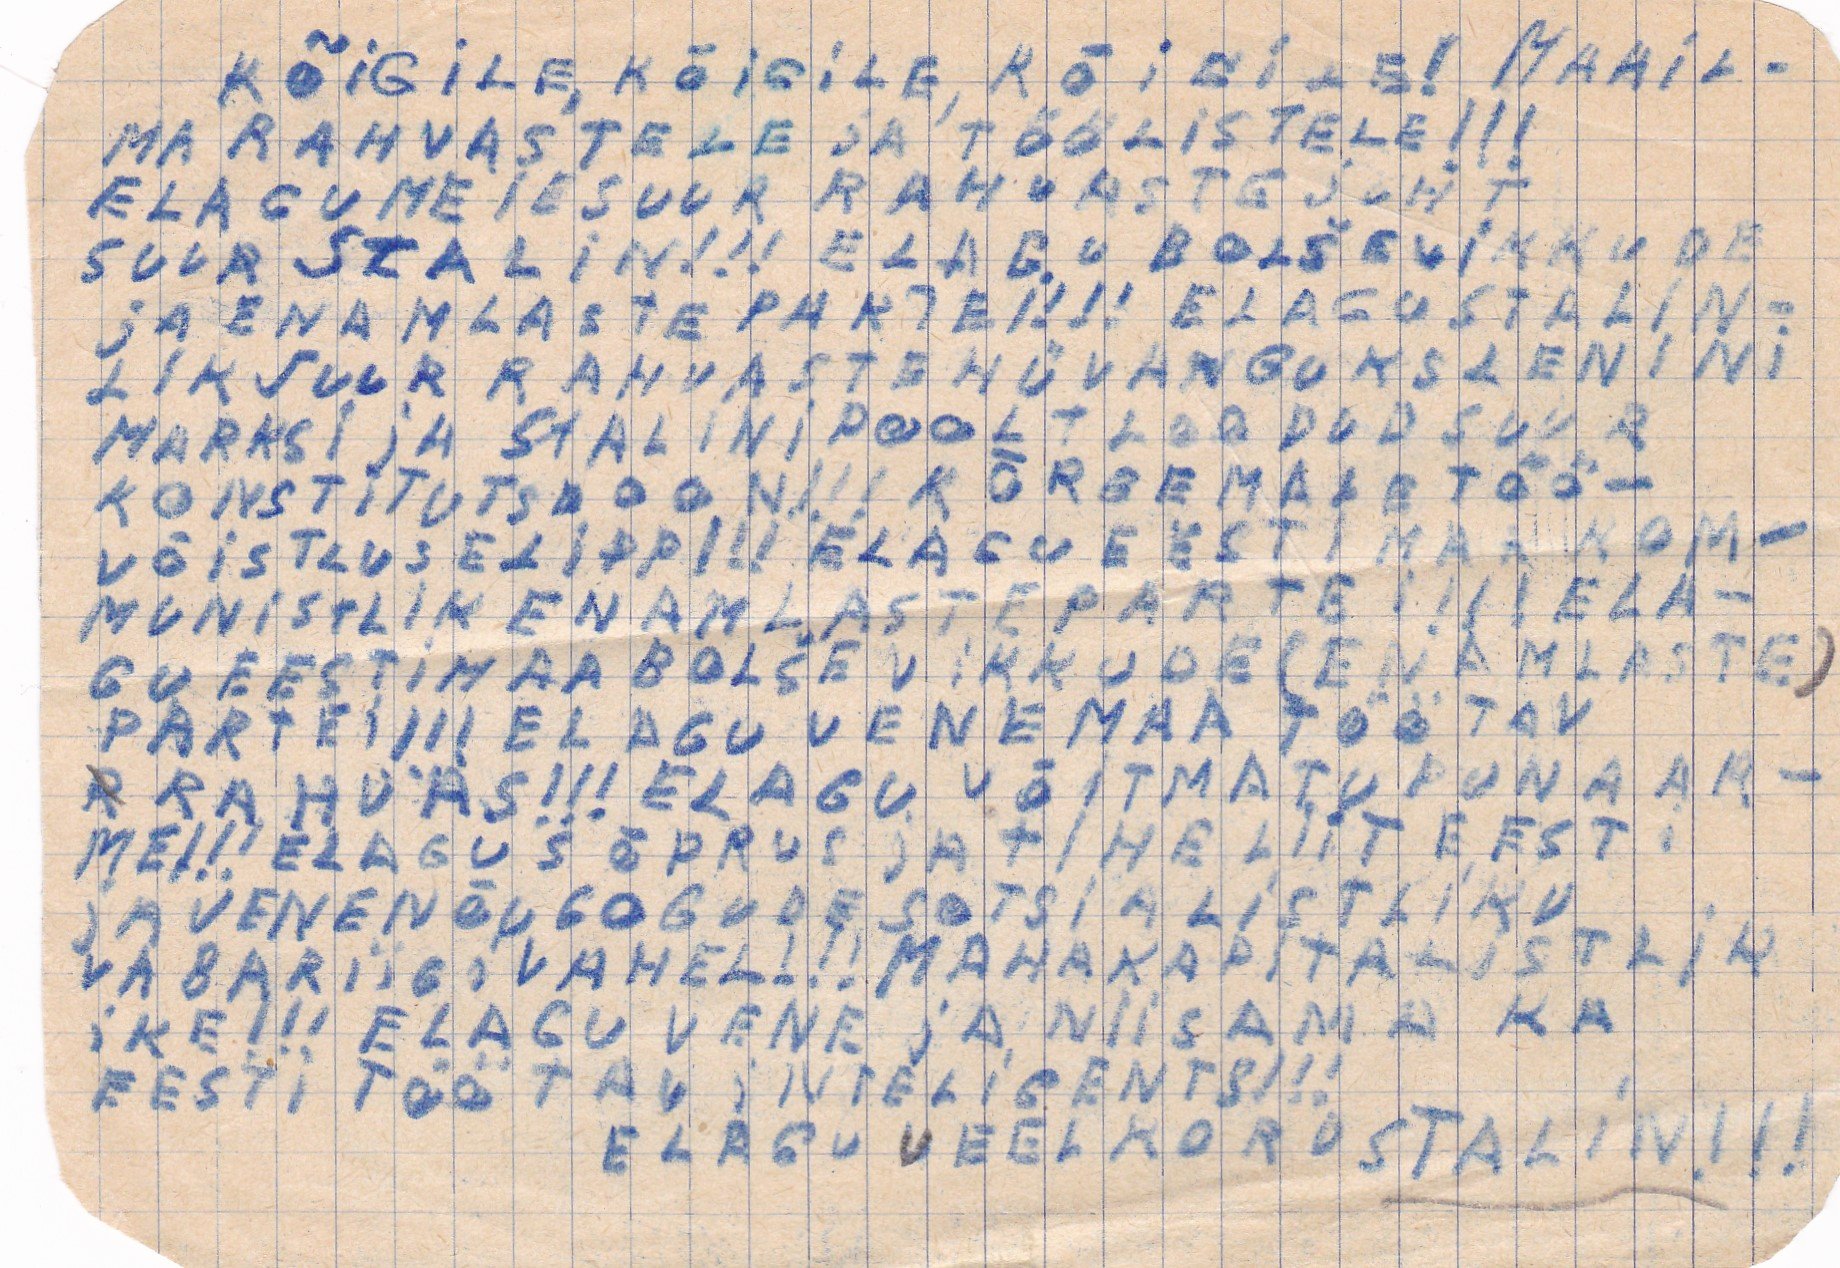 KÕiGiLE, KÕiGiLE, KÕiGiLE! MAAiL-
MA RAHVASTELE jA TÖÖLISTELE!!!
ELAGU MEiE SUUR RAHVASTE jUHT
SUUR STALiN!!! ELAGU BOLŠEViKKUDE
jA ENAMLASTE PARTEI!!! ELAGU STALiN-
LiK SUUR RAHVASTE HÜVANGUKS LENiNi
MARKSi jA STALiNi POOLT LOODUD SUUR
KONSTiTUTSOOON!!! KÕRGEMALE TÖÖ-
VÕiSTLUSE LiPP!!! ELAGU EESTiMAA KOM-
MUNiSTLiK ENAMLASTE PARTEi!!! ELA-
GU EESTiMAA BOLŠEViKKUDE (ENAMLASTE)
PARTEi!!! ELAGU VENEMAA TÖÖTAV
R RAHVAS!!! ELAGU VÕiTMATU PUNAAR-
MEI!! ELAGU SÕPRUS jA TiHE LiiT EESTi
jA VENE NÕUGOGUDE SOTSiALiSTLiKU
VABARiiGi VAHEL!!! MAHA KAPiTALiSTLiK
iKE!!! ELAGU VENE jA NiiSAMA KA
EESTi TÖÖTAV iNTELiGENTS!!!
ELAGU VEELKORD STALiN!!!